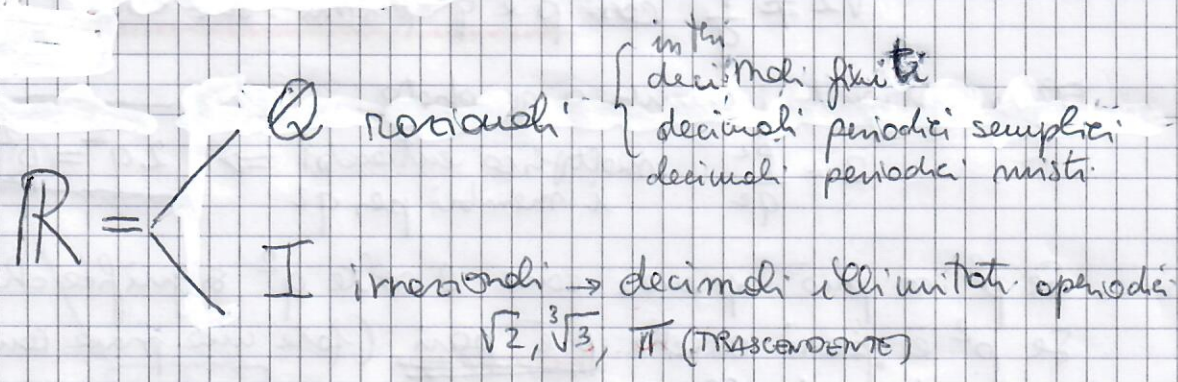 interi
decimali finiti
Q razionali { decimali periodici semplici
decimali periodici misti.
ℝ =
I irrazionali → decimali illimitati aperiodici
√2, ∛3, π (TRASCENDENTE)